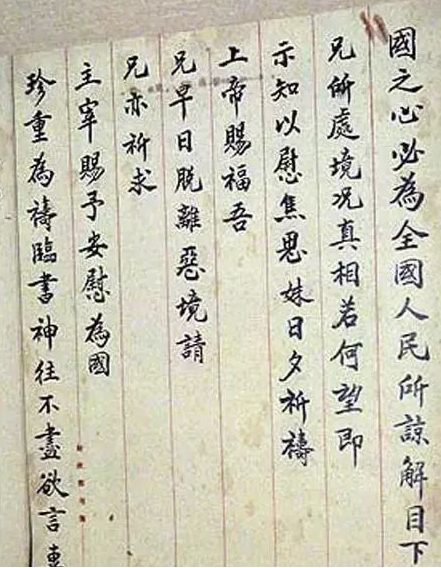 國之心必為全國人民所諒解目下
兄所處境况真相若何望即
示知以慰焦思妹日夕祈禱
上帝賜福吾
兄早日脫離惡境請
兄亦祈求
主宰賜予安慰為國
珍重為禱臨書神往不盡欲言專